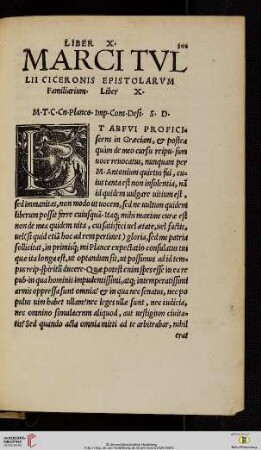 LIBER X.
MARCI TVL
LII CICERONIS EPISTOLARVM
Familiarium. Liber X.
M. T. C. Cn. Planco. Imp. Cons. Desi. S. D.
ET ABFVI PROFICI
scens in Græciam, & postea
quàm de meo cursu reipu. sum
uoce reuocatus, nunquam per
M. Antonium quietus fui, cu
ius tanta est non insolentia, nã
id quidem uulgare uitium est,
sed immanitas, non modo ut uocem, sed ne uultum quidem
liberum possit ferre cuiusquã. Itaq; mihi maximæ curæ est
non de mea quidem uita, cui satisfeci uel ætate, uel factis,
uel (si quid etiã hoc ad rem pertinet) gloria, sed me patria
sollicitat, in primisq; mi Plance expectatio consulatus tui
quæ ita longa est, ut optandum sit, ut possimus ad id tem
pus reip. spiritũ ducere. Quæ potest enim spes esse in ea re
pub. in qua hominis impudentissimi, atq; intemperatissimi
armis oppressa sunt omnia? & in qua nec senatus, nec po
pulus uim habet ullam? nec leges ullæ sunt, nec iudicia,
nec omnino simulacrum aliquod, aut uestigium ciuita
tis? Sed quando acta omnia mitti ad te arbitrabar, nihil
erat